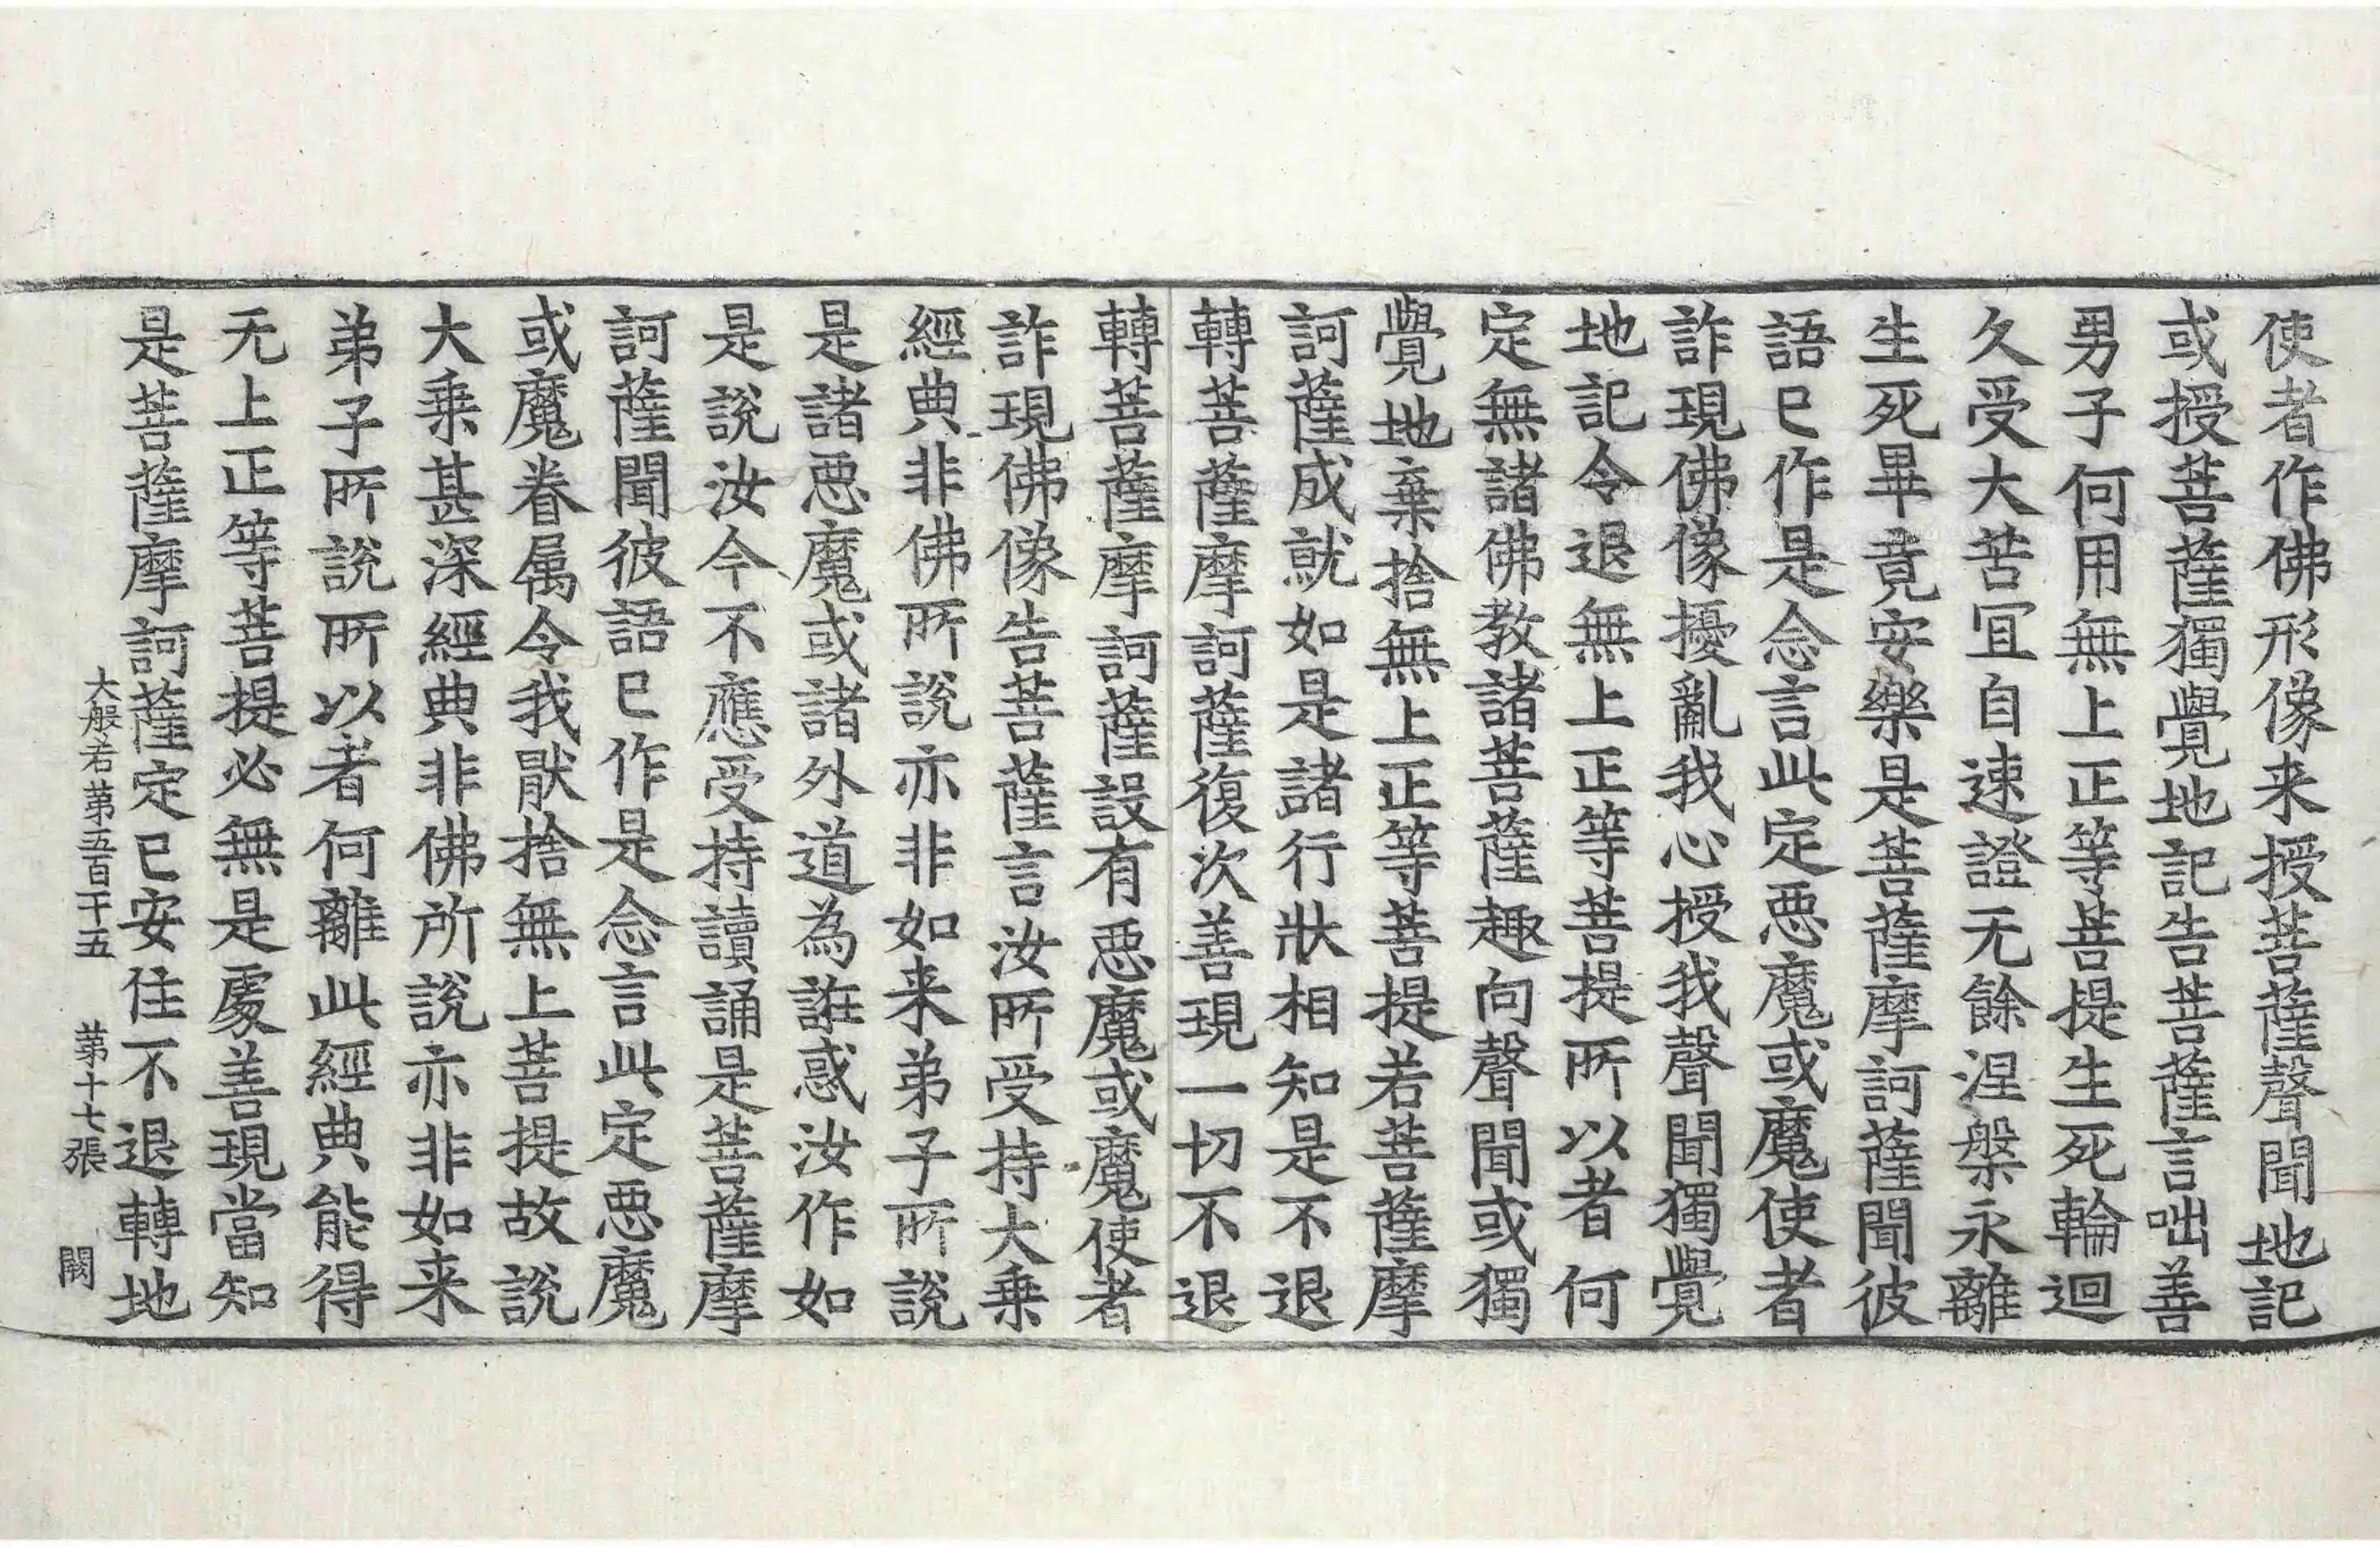 使者作佛形像来授菩薩聲聞地記
或授菩薩獨覺地記告菩薩言咄善
男子何用無上正等菩提生死輪迴
久受大苦冝自速證无餘涅槃永離
生死畢竟安樂是菩薩摩訶薩聞彼
語已作是念言此定惡魔或魔使者
詐現佛像擾亂我心授我聲聞獨覺
地記令退無上正等菩提所以者何
定無諸佛教諸菩薩趣向聲聞或獨
覺地棄捨無上正等菩提若菩薩摩
訶薩成就如是諸行狀相知是不退
轉菩薩摩訶薩復次善現一切不退
轉菩薩摩訶薩設有惡魔或魔使者
詐現佛像告菩薩言汝所受持大乗
經典非佛所說亦非如来弟子所說
是諸惡魔或諸外道為誑惑汝作如
是說汝今不應受持讀誦是菩薩摩
訶薩聞彼語已作是念言此定惡魔
或魔眷属令我猒捨無上菩提故說
大乗甚深經典非佛所說亦非如来
弟子所說所以者何離此經典能得
无上正等菩提必無是處善現當知
是菩薩摩訶薩定已安住不退轉地
大般若第五百十五 第十七張 闕